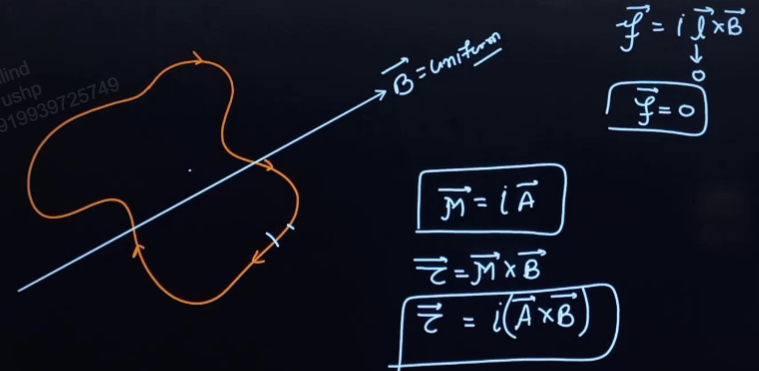 lind
ushp
919939725749
B⃗ = uniform
f⃗ = i l⃗ × B⃗
↓
0
f⃗ = 0
M⃗ = i A⃗
τ⃗ = M⃗ × B⃗
τ⃗ = i(A⃗ × B⃗)